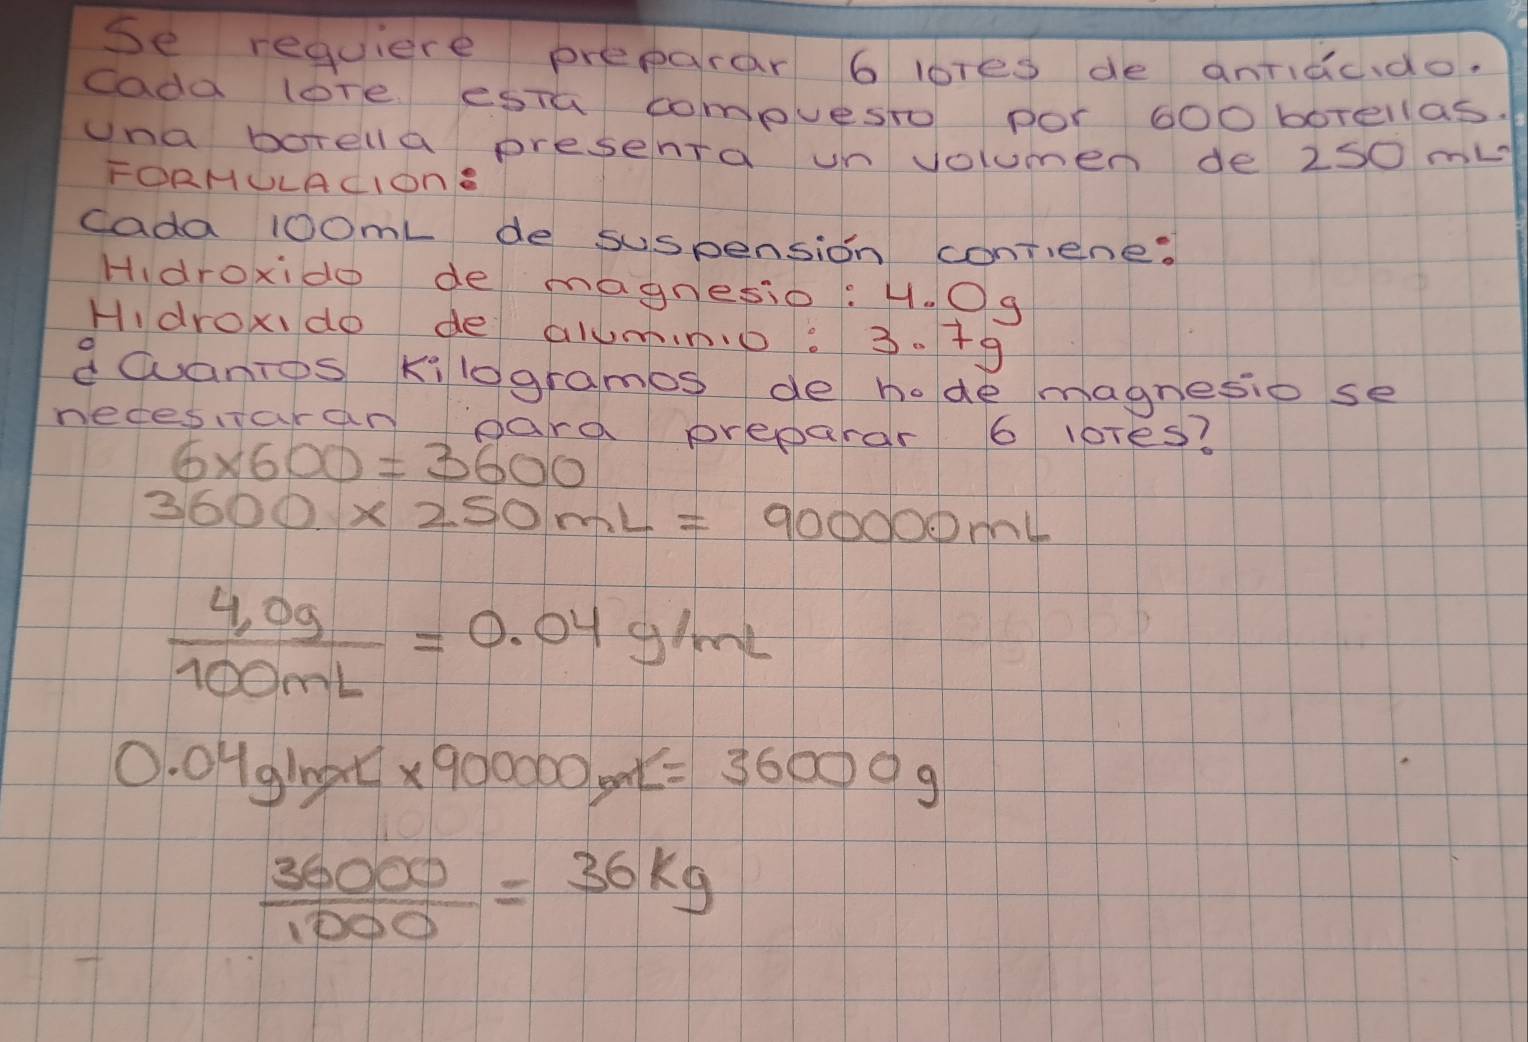 Se requiere preparar 6 lotes de antiácido.
Cada lote esta compuesto por 600 botellas.
Una botella presenta un volumen de 250 mL
FORMULACION:
Cada 100mL de suspensión contiene:
Hidroxido de magnesio: 4.0g
Hidroxido de aluminio: 3.7g
¿Cuantos Kilogramos de h. de magnesio se
necesitaran para preparar 6 lotes?
6x600=3600
3600 x 250mL = 900000mL
4,0g
100mL
= 0.04 g/mL
0.04g/mL x 900000mL= 36000g
36000
1000
= 36Kg